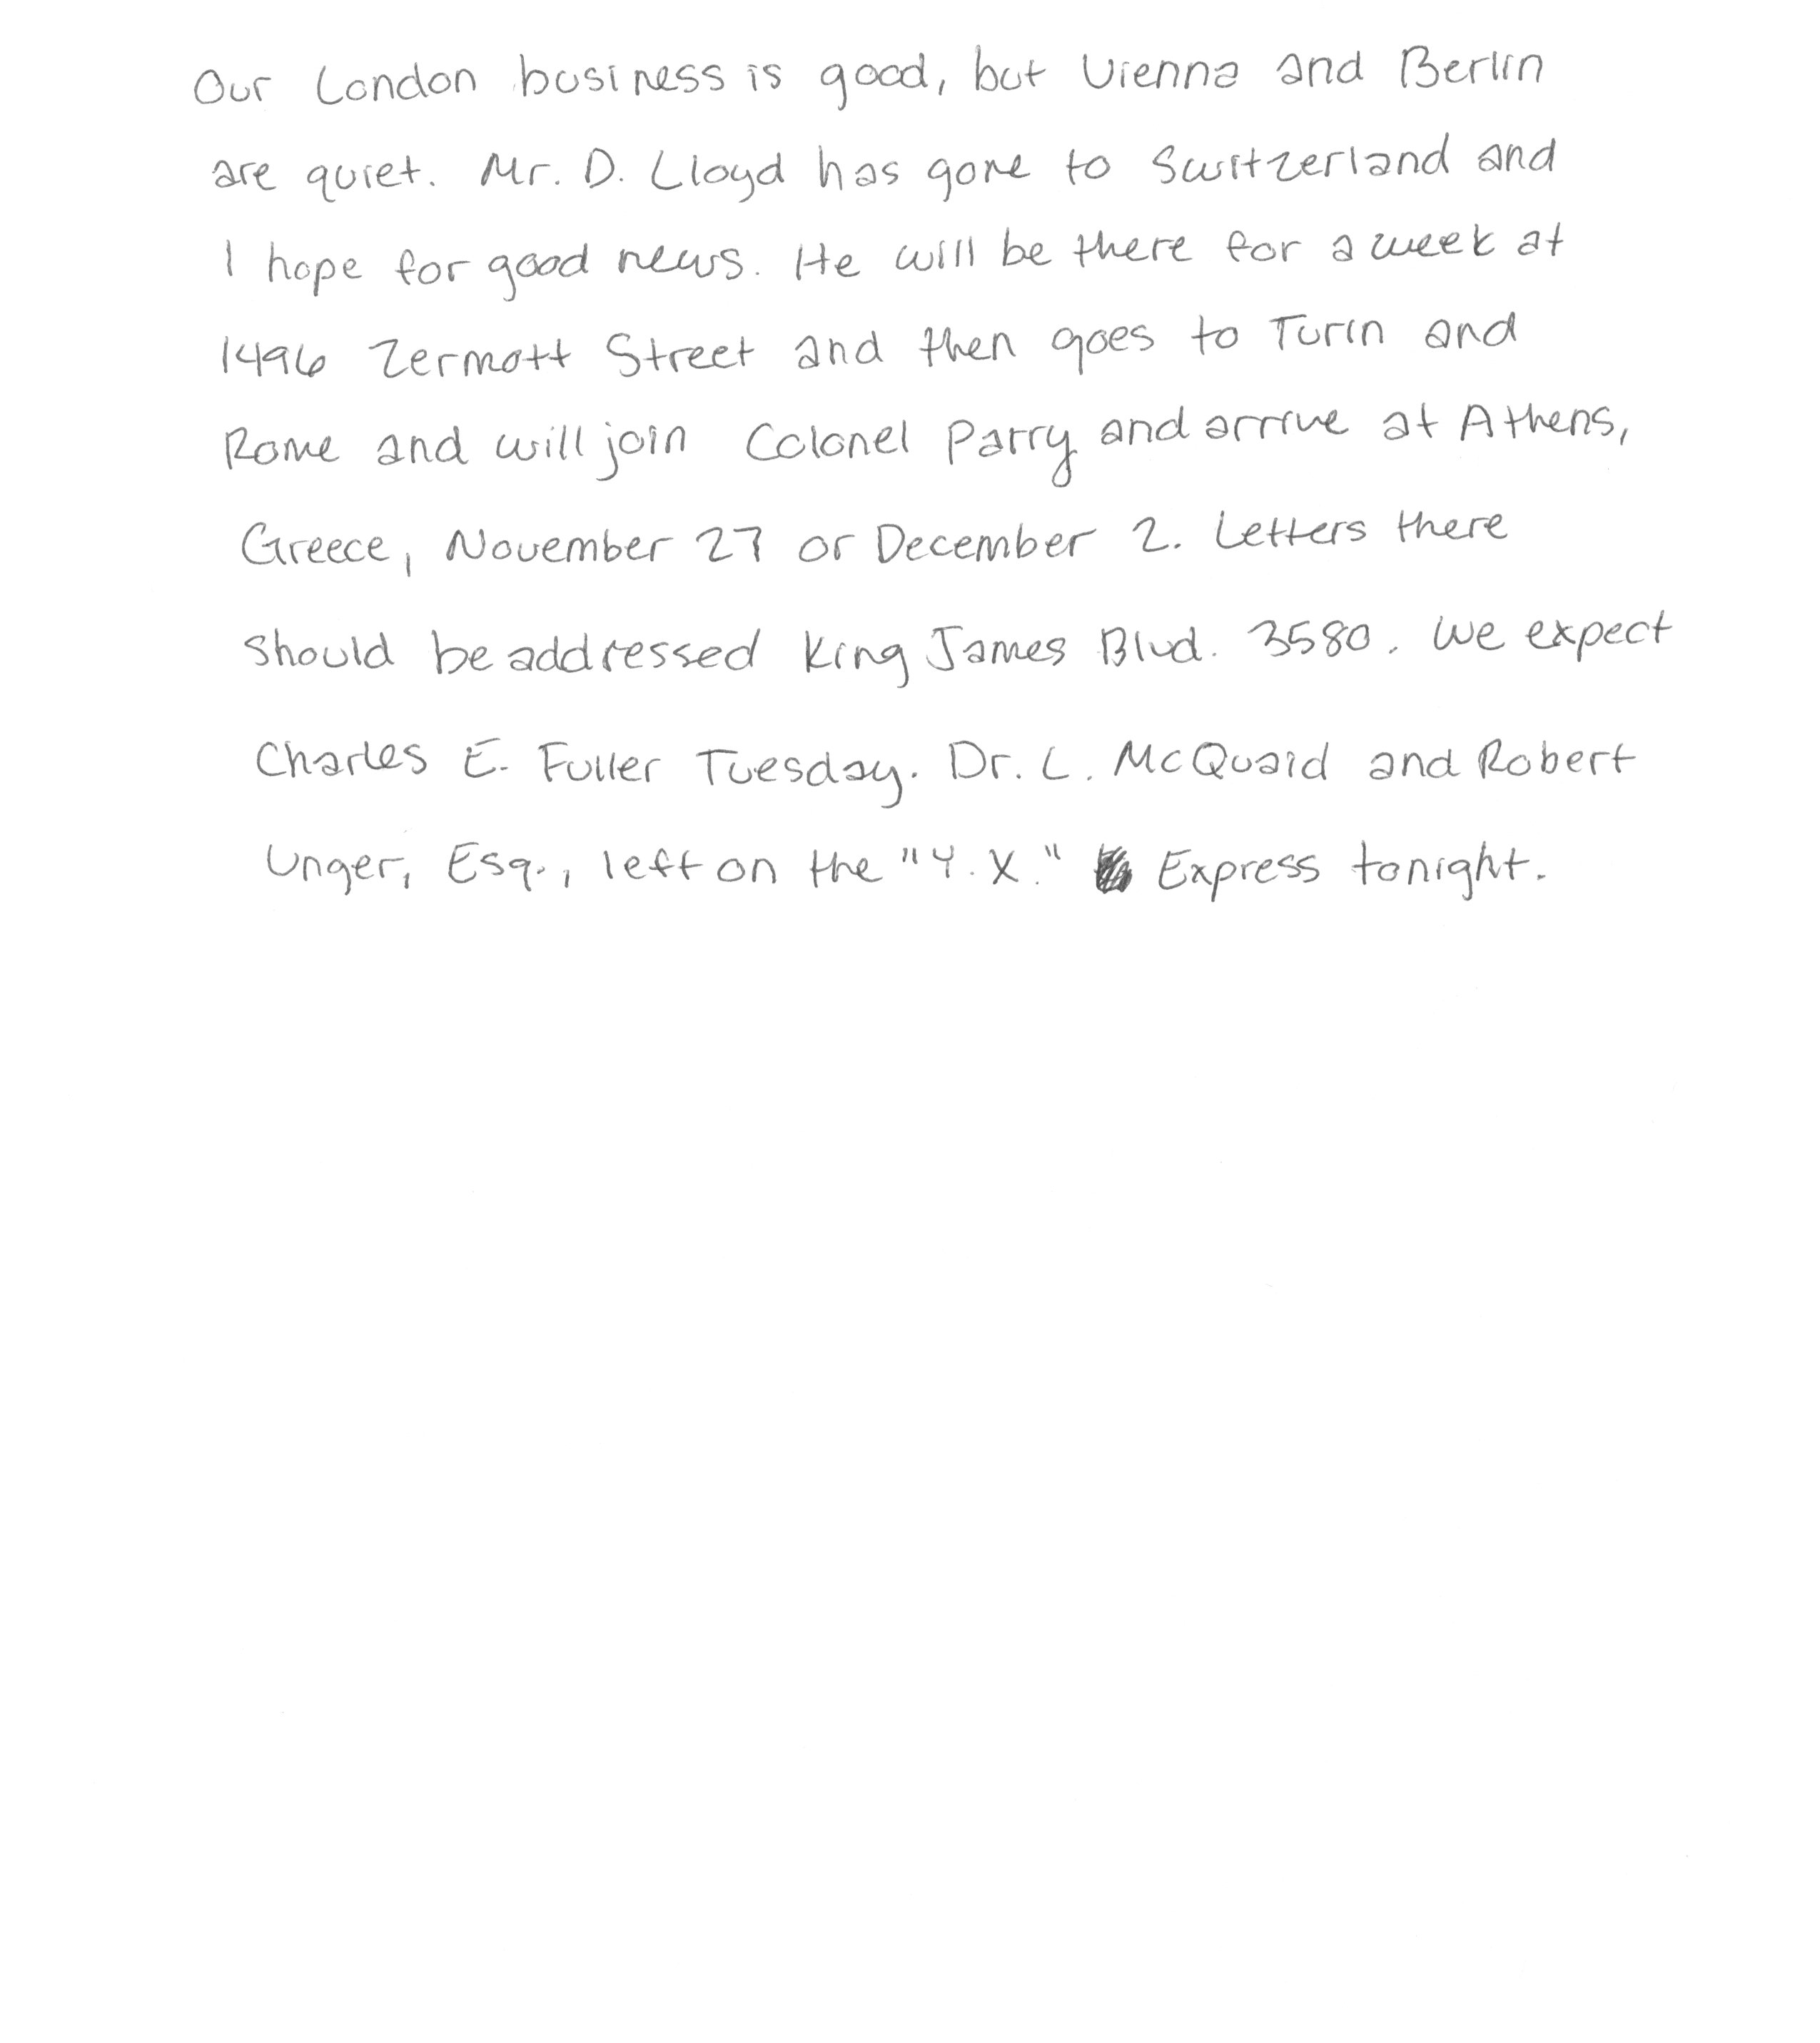 Our London business is good, but Vienna and Berlin
are quiet. Mr. D. Lloyd has gone to Switzerland and
I hope for good news. He will be there for a week at
1496 Zermott Street and then goes to Turin and
Rome and will join Colonel Parry and arrive at Athens,
Greece, November 27 or December 2. Letters there
should be addressed King James Blvd. 3580. We expect
Charles E. Fuller Tuesday. Dr. L. McQuaid and Robert
Unger, Esq., left on the "Y.X." Express tonight.